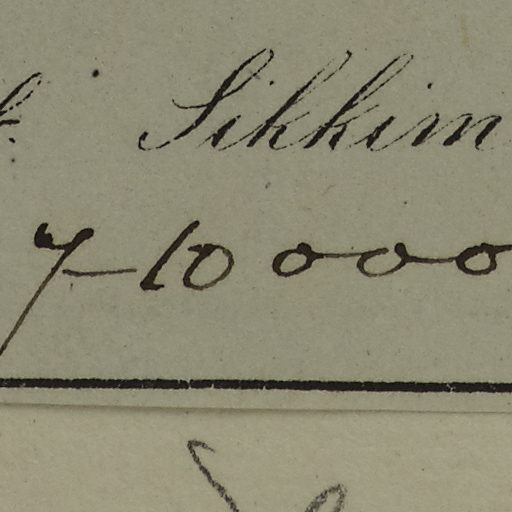 Sikkim
7-10000